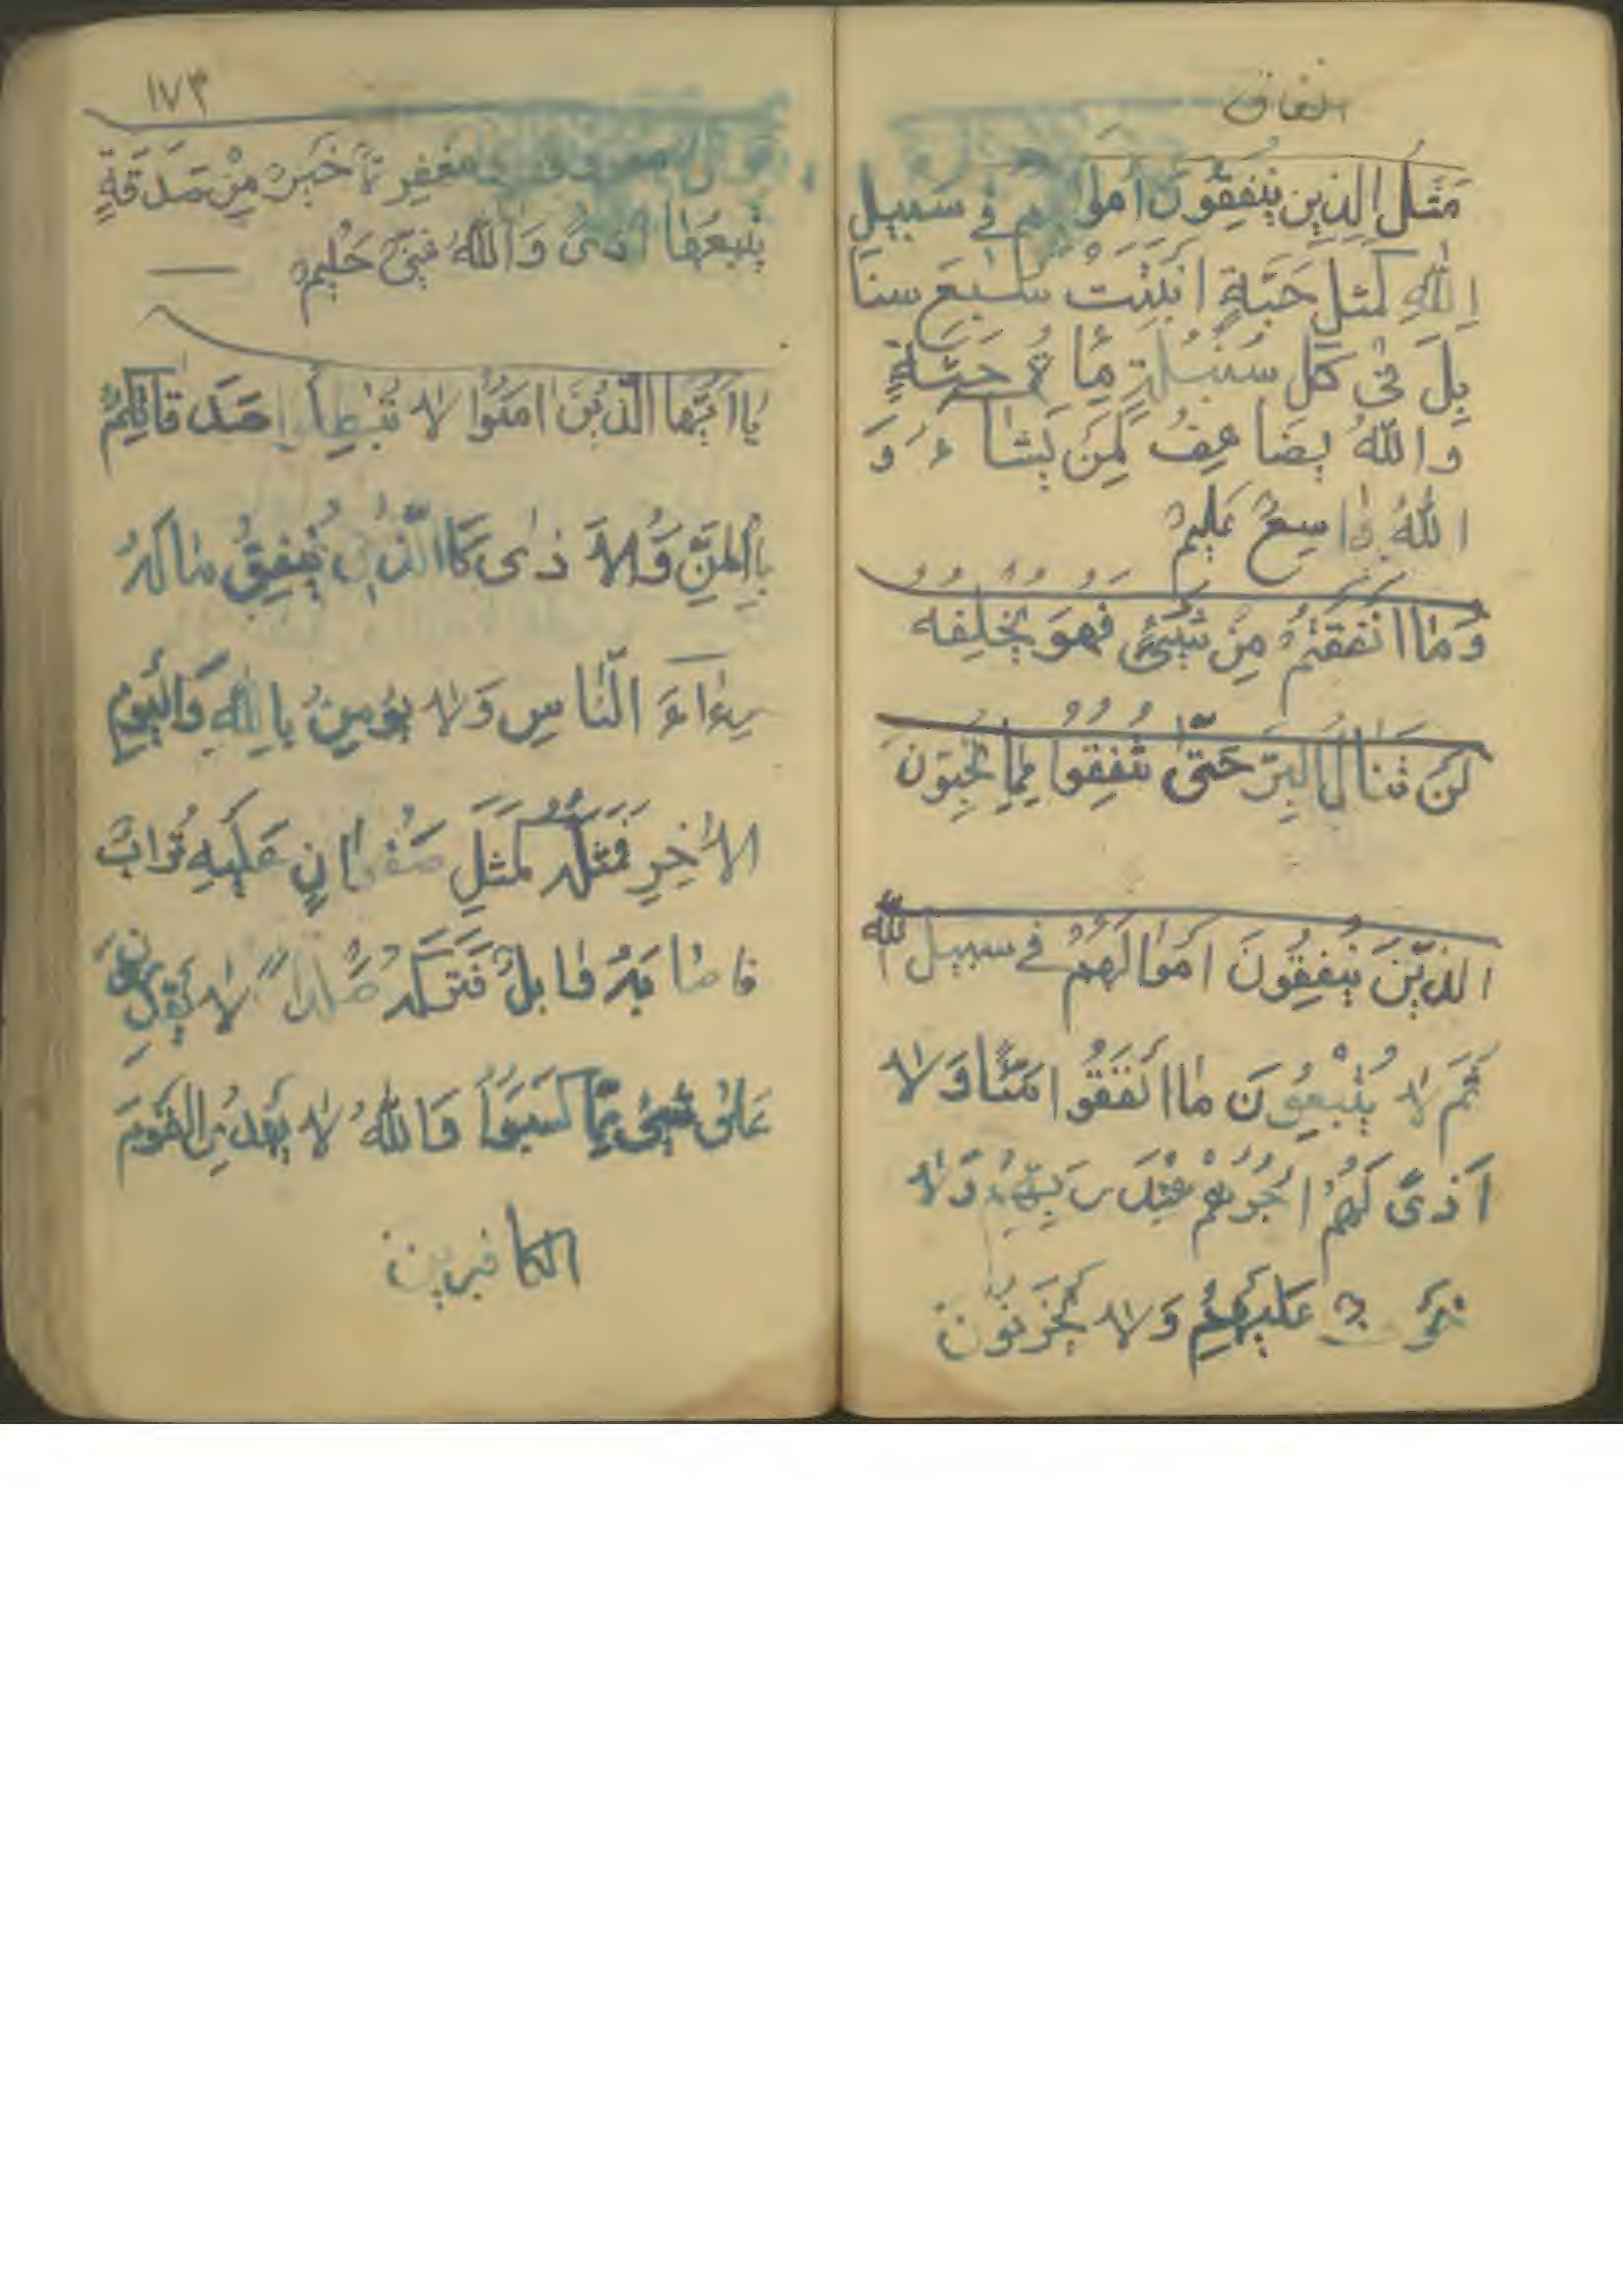 انفاق
مَثَلُ الَّذِينَ يُنْفِقُونَ أَمْوالَهُم في سَبيلِ
اللهِ كَمَثَلِ حَبَّةٍ اَنْبَتَتْ سَبْعَ سنا
بِلَ فى كُلِّ سُنْبُلَةٍ مِّا ئَةُ حَبَّةٍ
وَاللهُ يُضاعِفُ لِمَنْ يَشاءُ وَ
اللهُ واسِعٌ عَليمٌ
وَمٰا اَنْفَقْتُمْ مِنْ شَيْئٍ فَهُوَ يُخْلِفُه
لَنْ تَنٰالُوا البِرَّ حَتّىٰ تُنْفِقُوا مِمّا تُحِبّونَ
الَّذينَ يُنْفِقُونَ اَمْوٰالَهُمْ في سبيل الله
ثُمَّ لاٰ يُتْبِعُونَ مٰا اَنْفَقُوا مَنّاً وَلاٰ
اَذىً لَهُمْ اَجْرُهُمْ عِنْدَ رَبِّهِمْ وَلاٰ
خَوْفٌ عَلَيْهِمْ وَلاٰ يَحْزَنُونَ
١٧٣
قول معروف و مَغْفِرَةٌ خَيْرٌ مِنْ صَدَقَةٍ
يَتْبَعُهٰا اَذىً وَاللهُ غَنِىٌّ حَليمٌ
يٰا اَيُّهَا الَّذينَ اٰمَنُوا لاٰ تُبْطِلُوا صَدَقاتِكُمْ
بِالْمَنِّ وَالاَذٰى كَاالَّذى يُنْفِقُ مٰالَهُ
رِءٰاءَ النّاسِ وَلاٰ يُؤمِنُ بِاللهِ وَالْيَوْمِ
الاٰخِرِ فَمَثَلُهُ كَمَثَلِ صَفْوٰانٍ عَلَيْهِ تُرٰابٌ
فاصٰابَهُ وٰابِلٌ فَتَرَكَهُ صَلْداً لاٰ يَقْدِرُونَ
عَلىٰ شَيْئٍ مِمّا كَسَبُوا وَاللهُ لاٰ يَهْدِى القَوْمَ
الكافرين